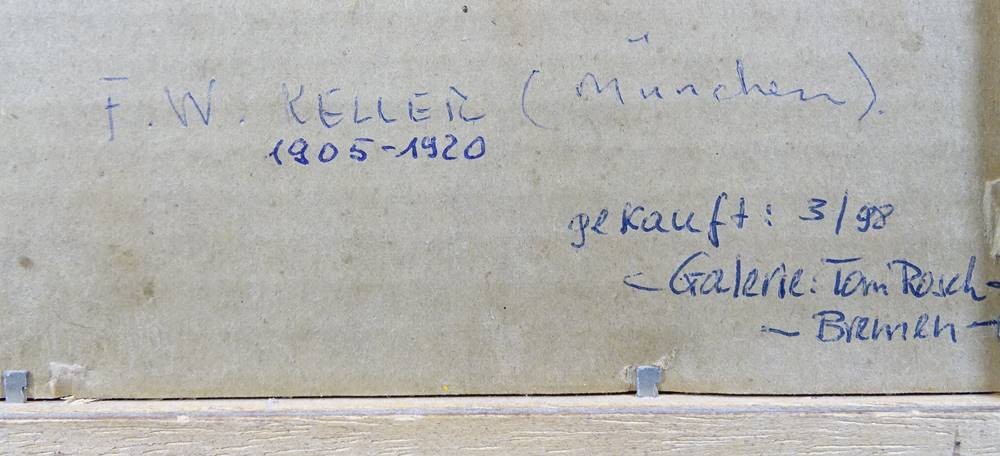 F. W. KELLER (München).
1905-1920
gekauft: 3/98
- Galerie: Toni Rosch -
- Bremen -